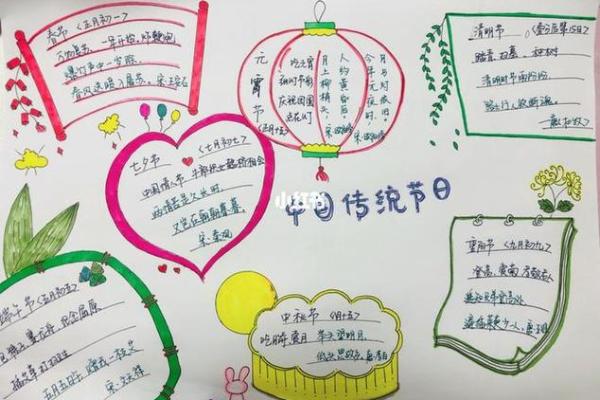 春节 (正月初一)
爆竹声中一岁除
春风送暖入屠苏 宋·王安石
元宵节 (正月十五)
吃元宵
庆祝团圆
月上柳梢头
人约黄昏后
清明节 (春分后第15日)
踏青、扫墓、植树
清明时节雨纷纷
路上行人欲断魂
唐·杜牧
七夕节 (七月初七)
中国情人节 牛郎织女鹊桥相会
两情若是久长时
又岂在朝朝暮暮
宋·秦观
小红书
中国传统节日
重阳节 (九月初九)
登高、赏菊、孝敬老人
遥知兄弟登高处
遍插茱萸少一人 唐·王维
端午节 (五月初五)
纪念屈原
五月五日午 赠我一枝艾
宋·文天祥
中秋节 (八月十五)
吃月饼 赏月 举头望明月
低头思故乡 唐·李白